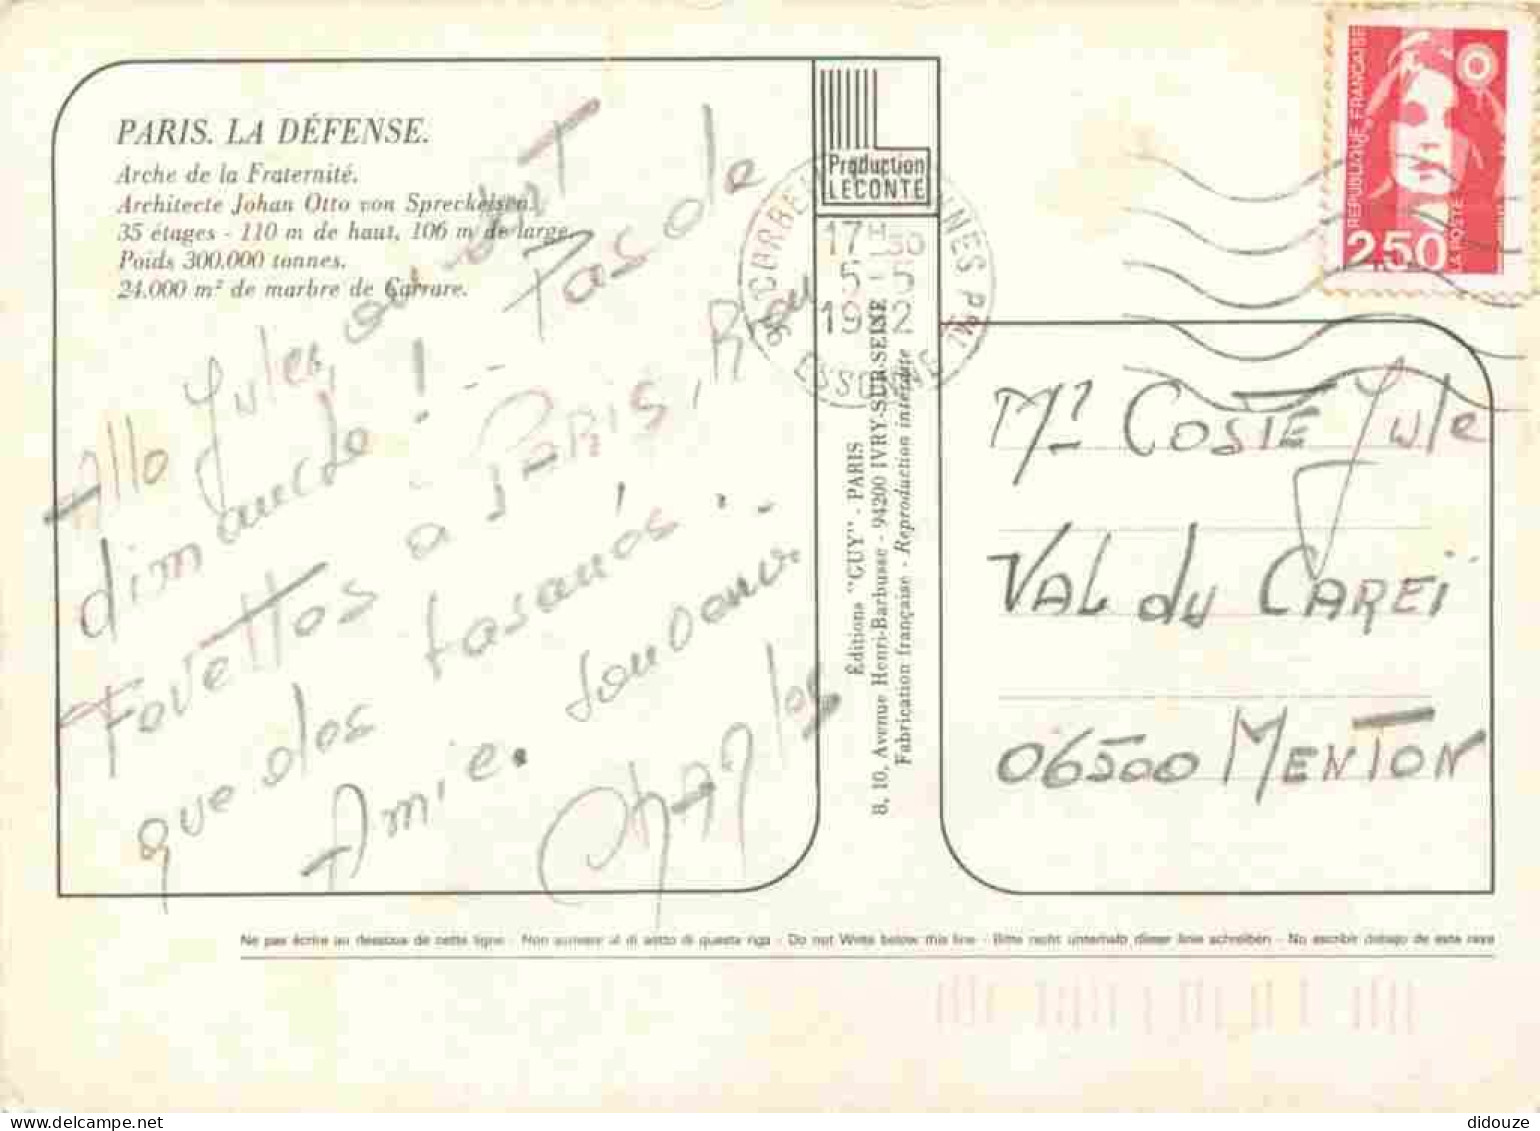 PARIS. LA DÉFENSE.
Arche de la Fraternité.
Architecte Johan Otto von Spreckelsen.
35 étages - 110 m de haut, 106 m de large.
Poids 300.000 tonnes.
24.000 m² de marbre de Carrare.
Allo Jules, on est
dimanche ! Pas de
à PARIS, Rien
que des
Amie. Souvenir
Charles
Production
LECONTE
17H30
5-5
1992
ESSONNE
Éditions "GUY" - PARIS
8, 10, Avenue Henri-Barbusse - 94200 IVRY-SUR-SEINE
Fabrication française - Reproduction interdite
REPUBLIQUE FRANÇAISE
2,50
LA POSTE
Mr COSTE Jule
VAL du CAREï
06500 MENTON
Ne pas écrire au dessous de cette ligne - Non scrivere al di sotto di questa riga - Do not Write below this line - Bitte nicht unterhalb dieser linie schreiben - No escribir debajo de esta raya
www.delcampe.net
didouze